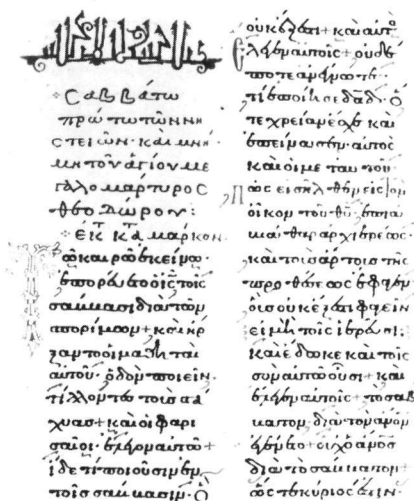 Σαββάτω
πρώτω τῶν νη
στειῶν· καὶ μνή
μη τοῦ ἁγίου με
γαλομάρτυρος
θεοδώρου:
ἐκ τ κτ μάρκον
Τῶ καιρῶ ἐκείνω
ἐπορεύετο ὁ ις τοῖς
σάββασι διὰ τῶν
σπορίμων + καὶ ἤρ
ξαντο οἱ μαθηταὶ
αὐτοῦ· ὁδὸν ποιεῖν·
τίλλοντες τοὺς στά
χυας + καὶ οἱ φαρι
σαῖοι· ἔλεγον αὐτῶ +
ἴδε τί ποιοῦσιν ἐν
τοῖς σάββασιν· ὃ
οὐκ ἔξεστι + καὶ αὐτὸς
ἔλεγεν αὐτοῖς + οὐδέ
ποτε ἀνέγνωτε·
τί ἐποίησε δᾶδ· ὅ
τε χρείαν ἔσχε καὶ
ἐπείνασεν· αὐτὸς
καὶ οἱ μετ αὐτοῦ·
πῶς εἰσῆλθεν εἰς τὸν
οἶκον τοῦ θυ, ἐπὶ ἀ
βιάθαρ ἀρχιερέως·
καὶ τοὺς ἄρτους τῆς
προθέσεως ἔφαγεν
οὓς οὐκ ἔξεστι φαγεῖν
εἰ μὴ τοῖς ἱερεῦσι:
καὶ ἔδωκε καὶ τοῖς
σὺν αὐτῶ οὖσι + καὶ
ἔλεγεν αὐτοῖς + τὸ σάβ
βατον, διὰ τὸν ἄνον
ἐγένετο + οὐχ ὁ ἄνος
διὰ τὸ σάββατον +
ὥστε κύριός ἐστιν